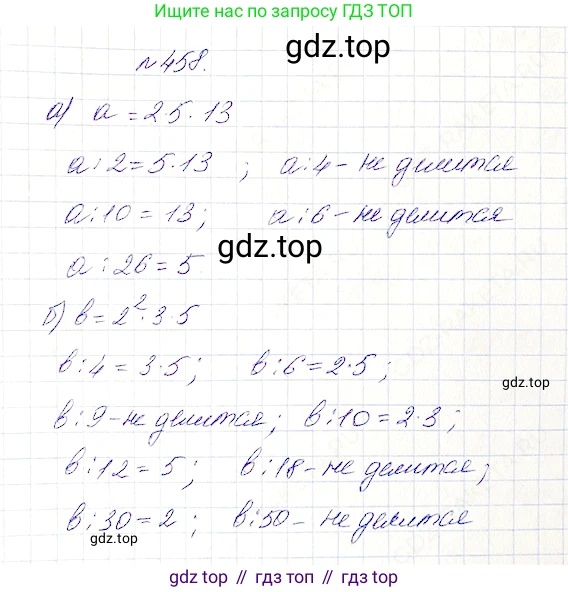 Ищите нас по запросу ГДЗ ТОП
gdz.top
№458.
а) a = 2·5·13
a : 2 = 5·13 ; a : 4 – не делится
a : 10 = 13; a : 6 – не делится
gdz.top
a : 26 = 5
б) в = 2²·3·5
в : 4 = 3·5; в : 6 = 2·5;
gdz.top
в : 9 – не делится; в : 10 = 2·3;
в : 12 = 5; в : 18 – не делится;
в : 30 = 2; в : 50 – не делится
gdz.top
gdz top // гдз топ // gdz.top